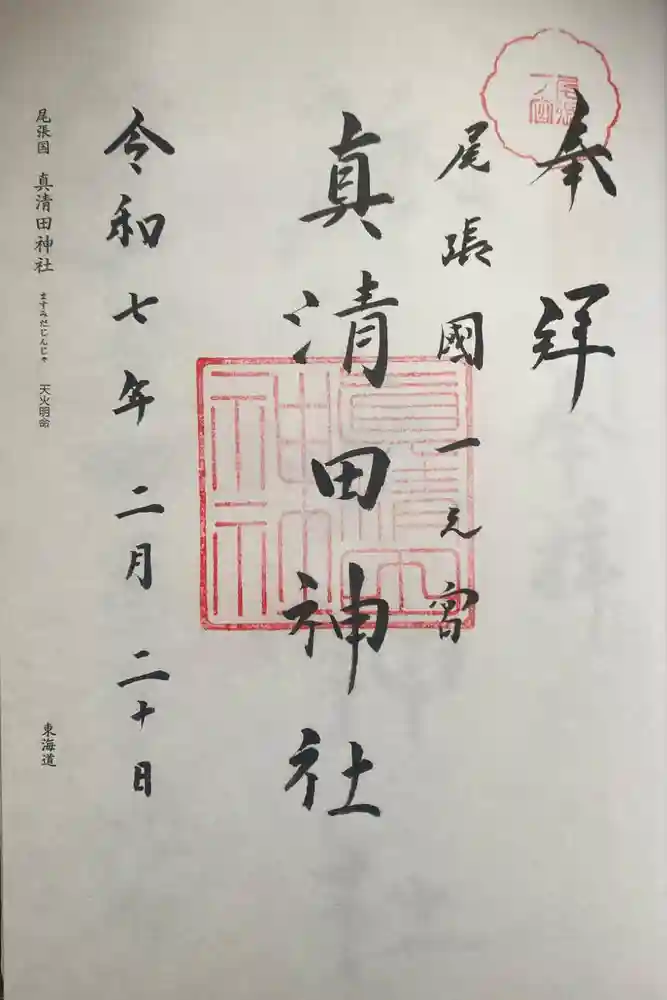 奉拝
尾張國一之宮
真清田神社
令和七年二月二十日
尾張国 真清田神社 ますみだじんじゃ 天火明命
東海道
尾張一ノ宮
真清田神社